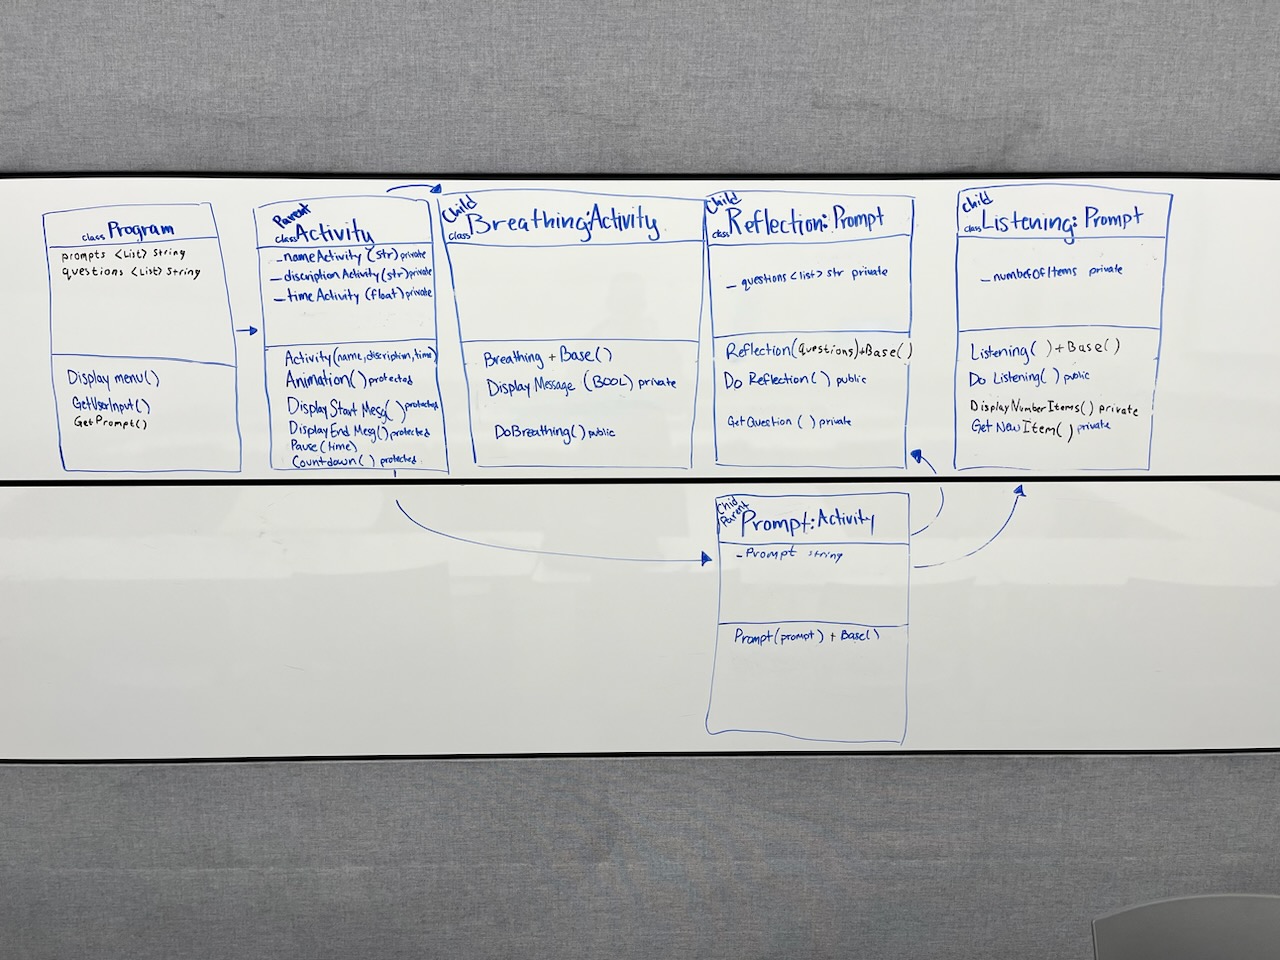 class Program
prompts <List> string
questions <List> string
Display menu()
GetUserInput()
GetPrompt()
Parent
class Activity
_nameActivity (str) private
_discriptionActivity (str) private
_timeActivity (float) private
Activity(name, discription, time)
Animation() protected
DisplayStart Mesg() protected
DisplayEnd Mesg() protected
Pause (time)
Countdown() protected
Child
class Breathing:Activity
Breathing + Base()
Display Message (BOOL) private
DoBreathing() public
Child
class Reflection: Prompt
_questions <list> str private
Reflection(questions)+Base()
Do Reflection() public
GetQuestion () private
Child
class Listening: Prompt
_numberOfItems private
Listening( )+Base()
Do Listening() public
DisplayNumberItems() private
Get New Item() private
Chid
Parent
Prompt:Activity
_Prompt string
Prompt(prompt) + Base()